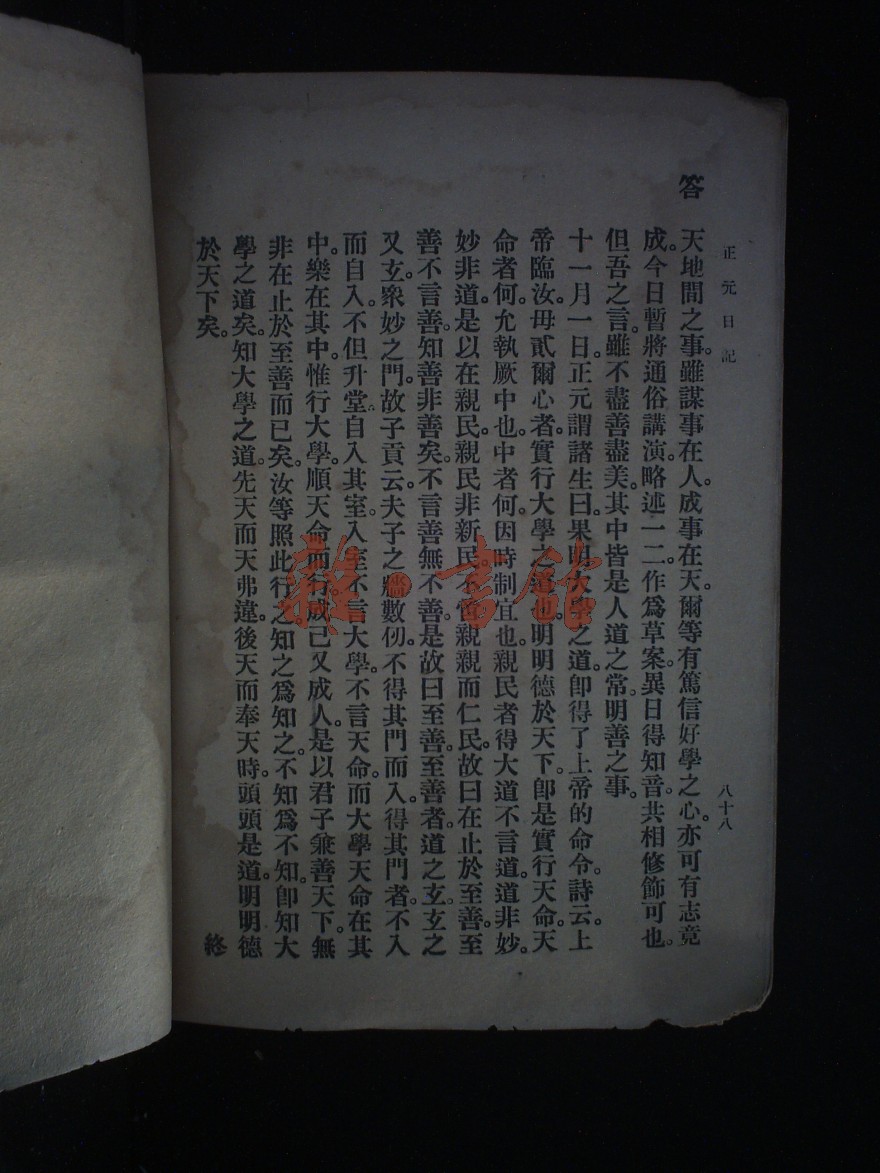 正元日記
八十八
答 天地間之事。雖謀事在人。成事在天。爾等有篤信好學之心。亦可有志竟
成。今日暫將通俗講演。略述一二。作爲草案。異日得知音。共相修飾可也。
但吾之言。雖不盡善盡美。其中皆是人道之常。明善之事。
十一月一日。正元謂諸生曰。果明大學之道。卽得了上帝的命令。詩云。上
帝臨汝。毋貳爾心者。實行大學之道也。明明德於天下。卽是實行天命。天
命者何。允執厥中也。中者何。因時制宜也。親民者得大道不言道。道非妙。
妙非道。是以在親民。親民非新民。不啻親親而仁民。故曰在止於至善。至
善不言善。知善非善矣。不言善無不善。是故曰至善。至善者。道之玄。玄之
又玄。衆妙之門。故子貢云。夫子之牆數仞。不得其門而入。得其門者。不入
而自入。不但升堂。自入其室。入室不言大學。不言天命。而大學天命在其
中。樂在其中。惟行大學。順天命而行。成己又成人。是以君子兼善天下。無
非在止於至善而已矣。汝等照此行之。知之爲知之。不知爲不知。卽知大
學之道矣。知大學之道。先天而天弗違。後天而奉天時。頭頭是道。明明德
於天下矣。
終
雜·書館